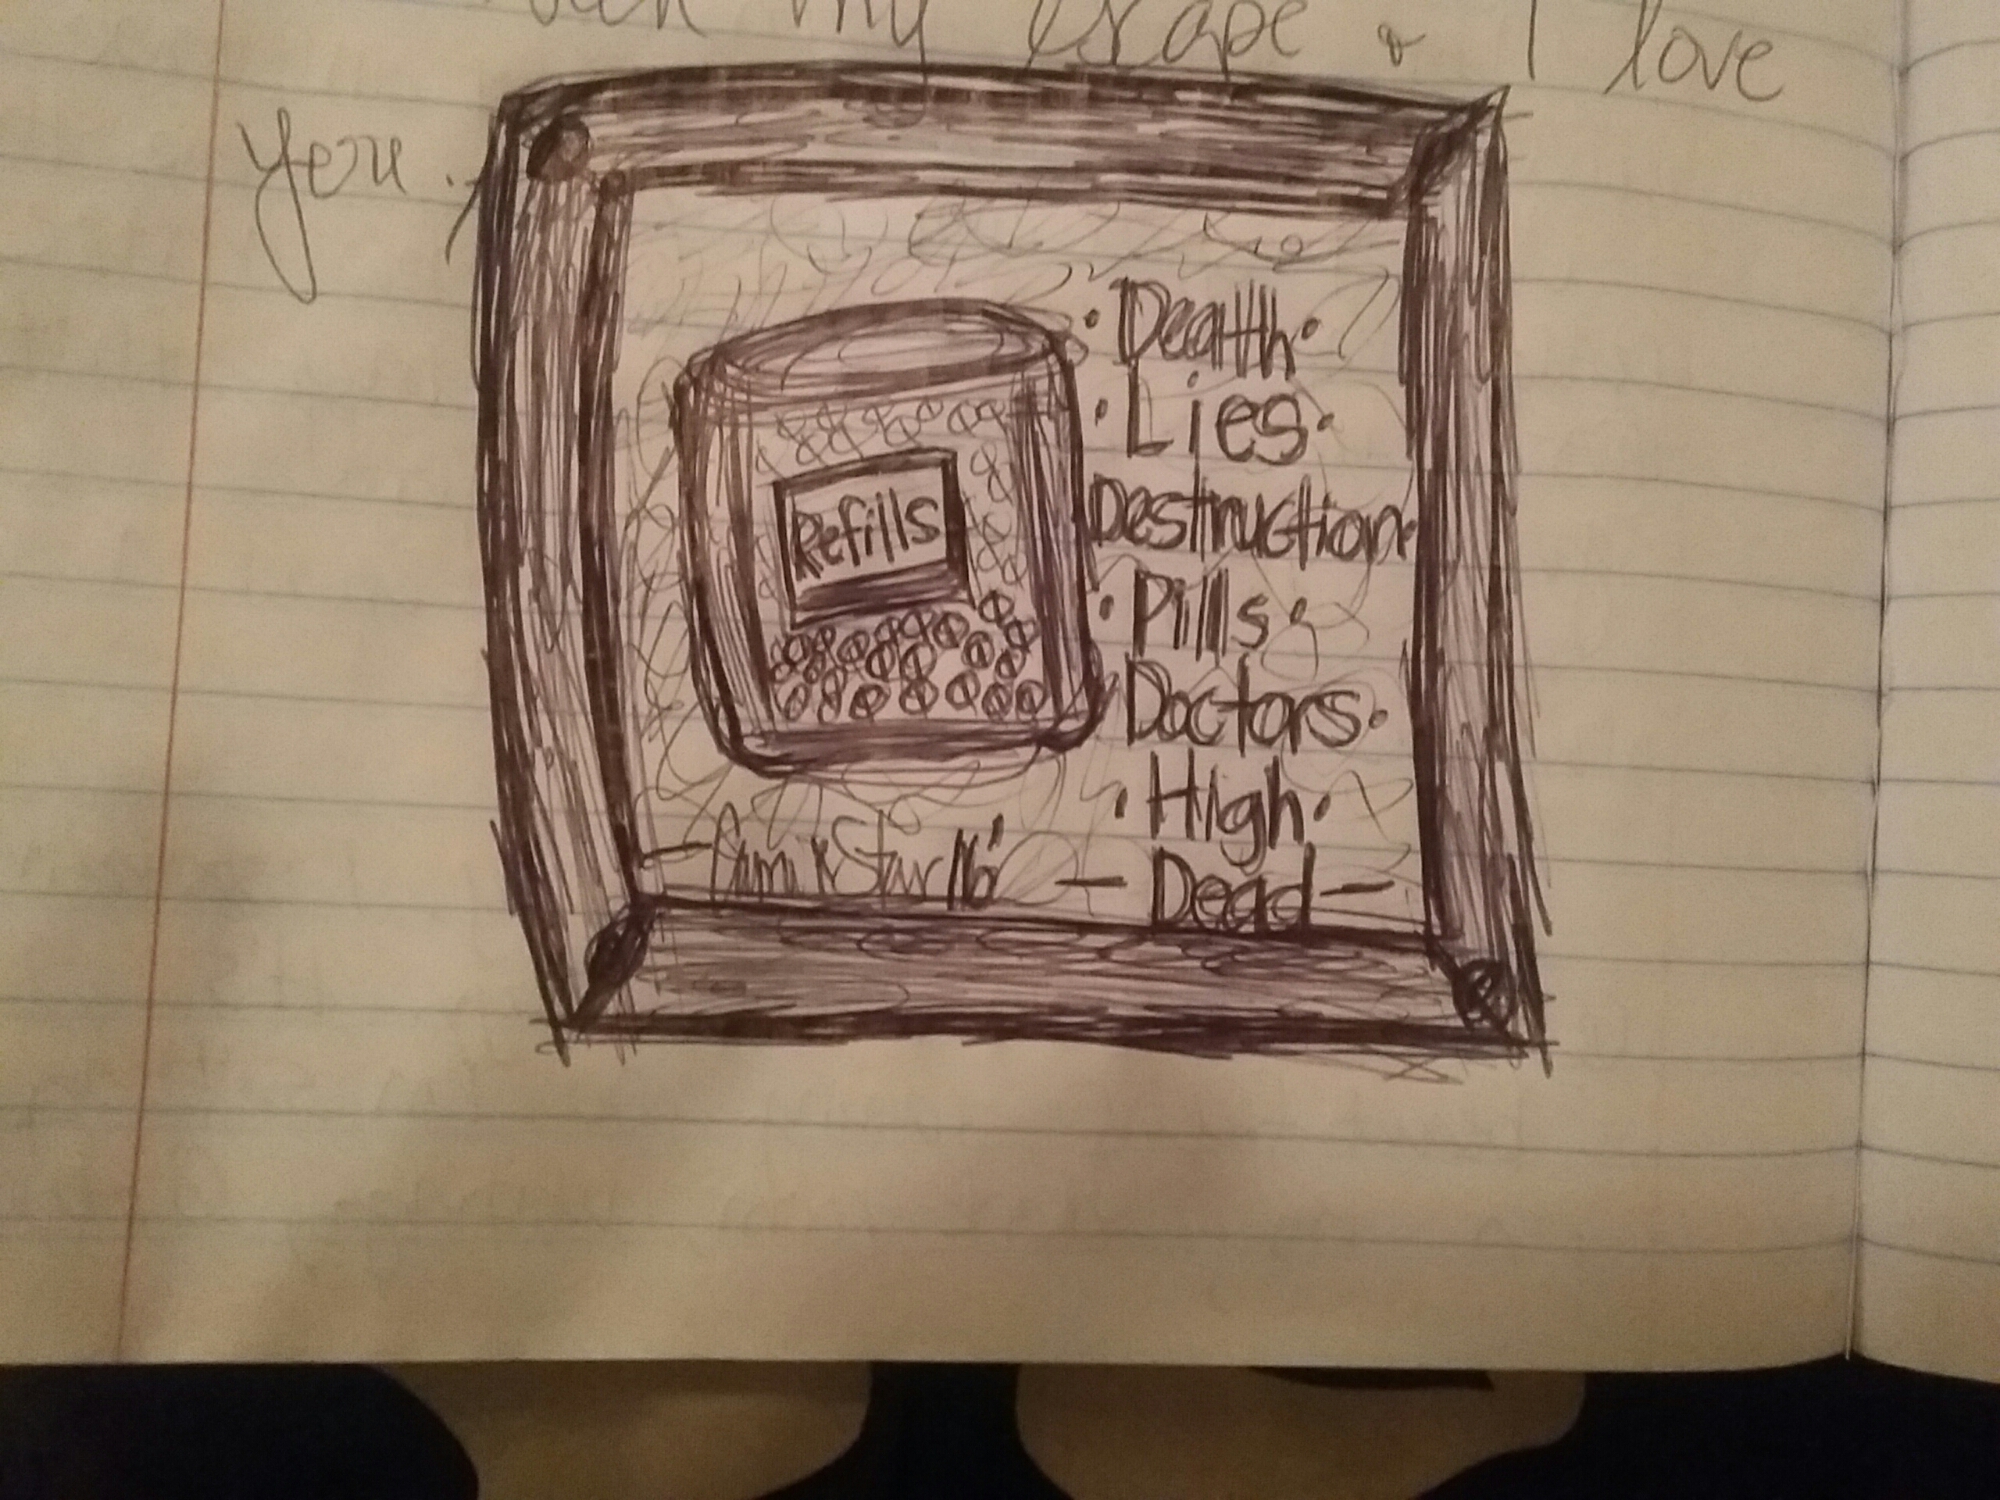 my escape & I love
you.
Refills
· Death ·
· Lies ·
Destruction ·
· Pills ·
Doctors ·
· High ·
— Dead —
Star 16'